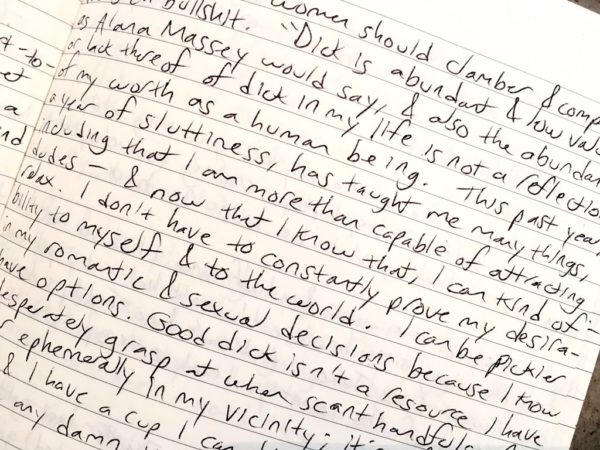 women should clamber & comp
bullshit. "Dick is abundant & low valu
as Alana Massey would say, & also the abundan
or lack thereof of dick in my life is not a reflection
of my worth as a human being. This past year,
a year of sluttiness, has taught me many things,
including that I am more than capable of attracting
dudes — & now that I know that, I can kind of
relax. I don't have to constantly prove my desira-
bility to myself & to the world. I can be pickier
in my romantic & sexual decisions because I know
have options. Good dick isn't a resource I have
desperately grasp at when scant handfuls
ephemerally in my vicinity; it's
& I have a cup I can
any damn
st-to-
et
a
nd